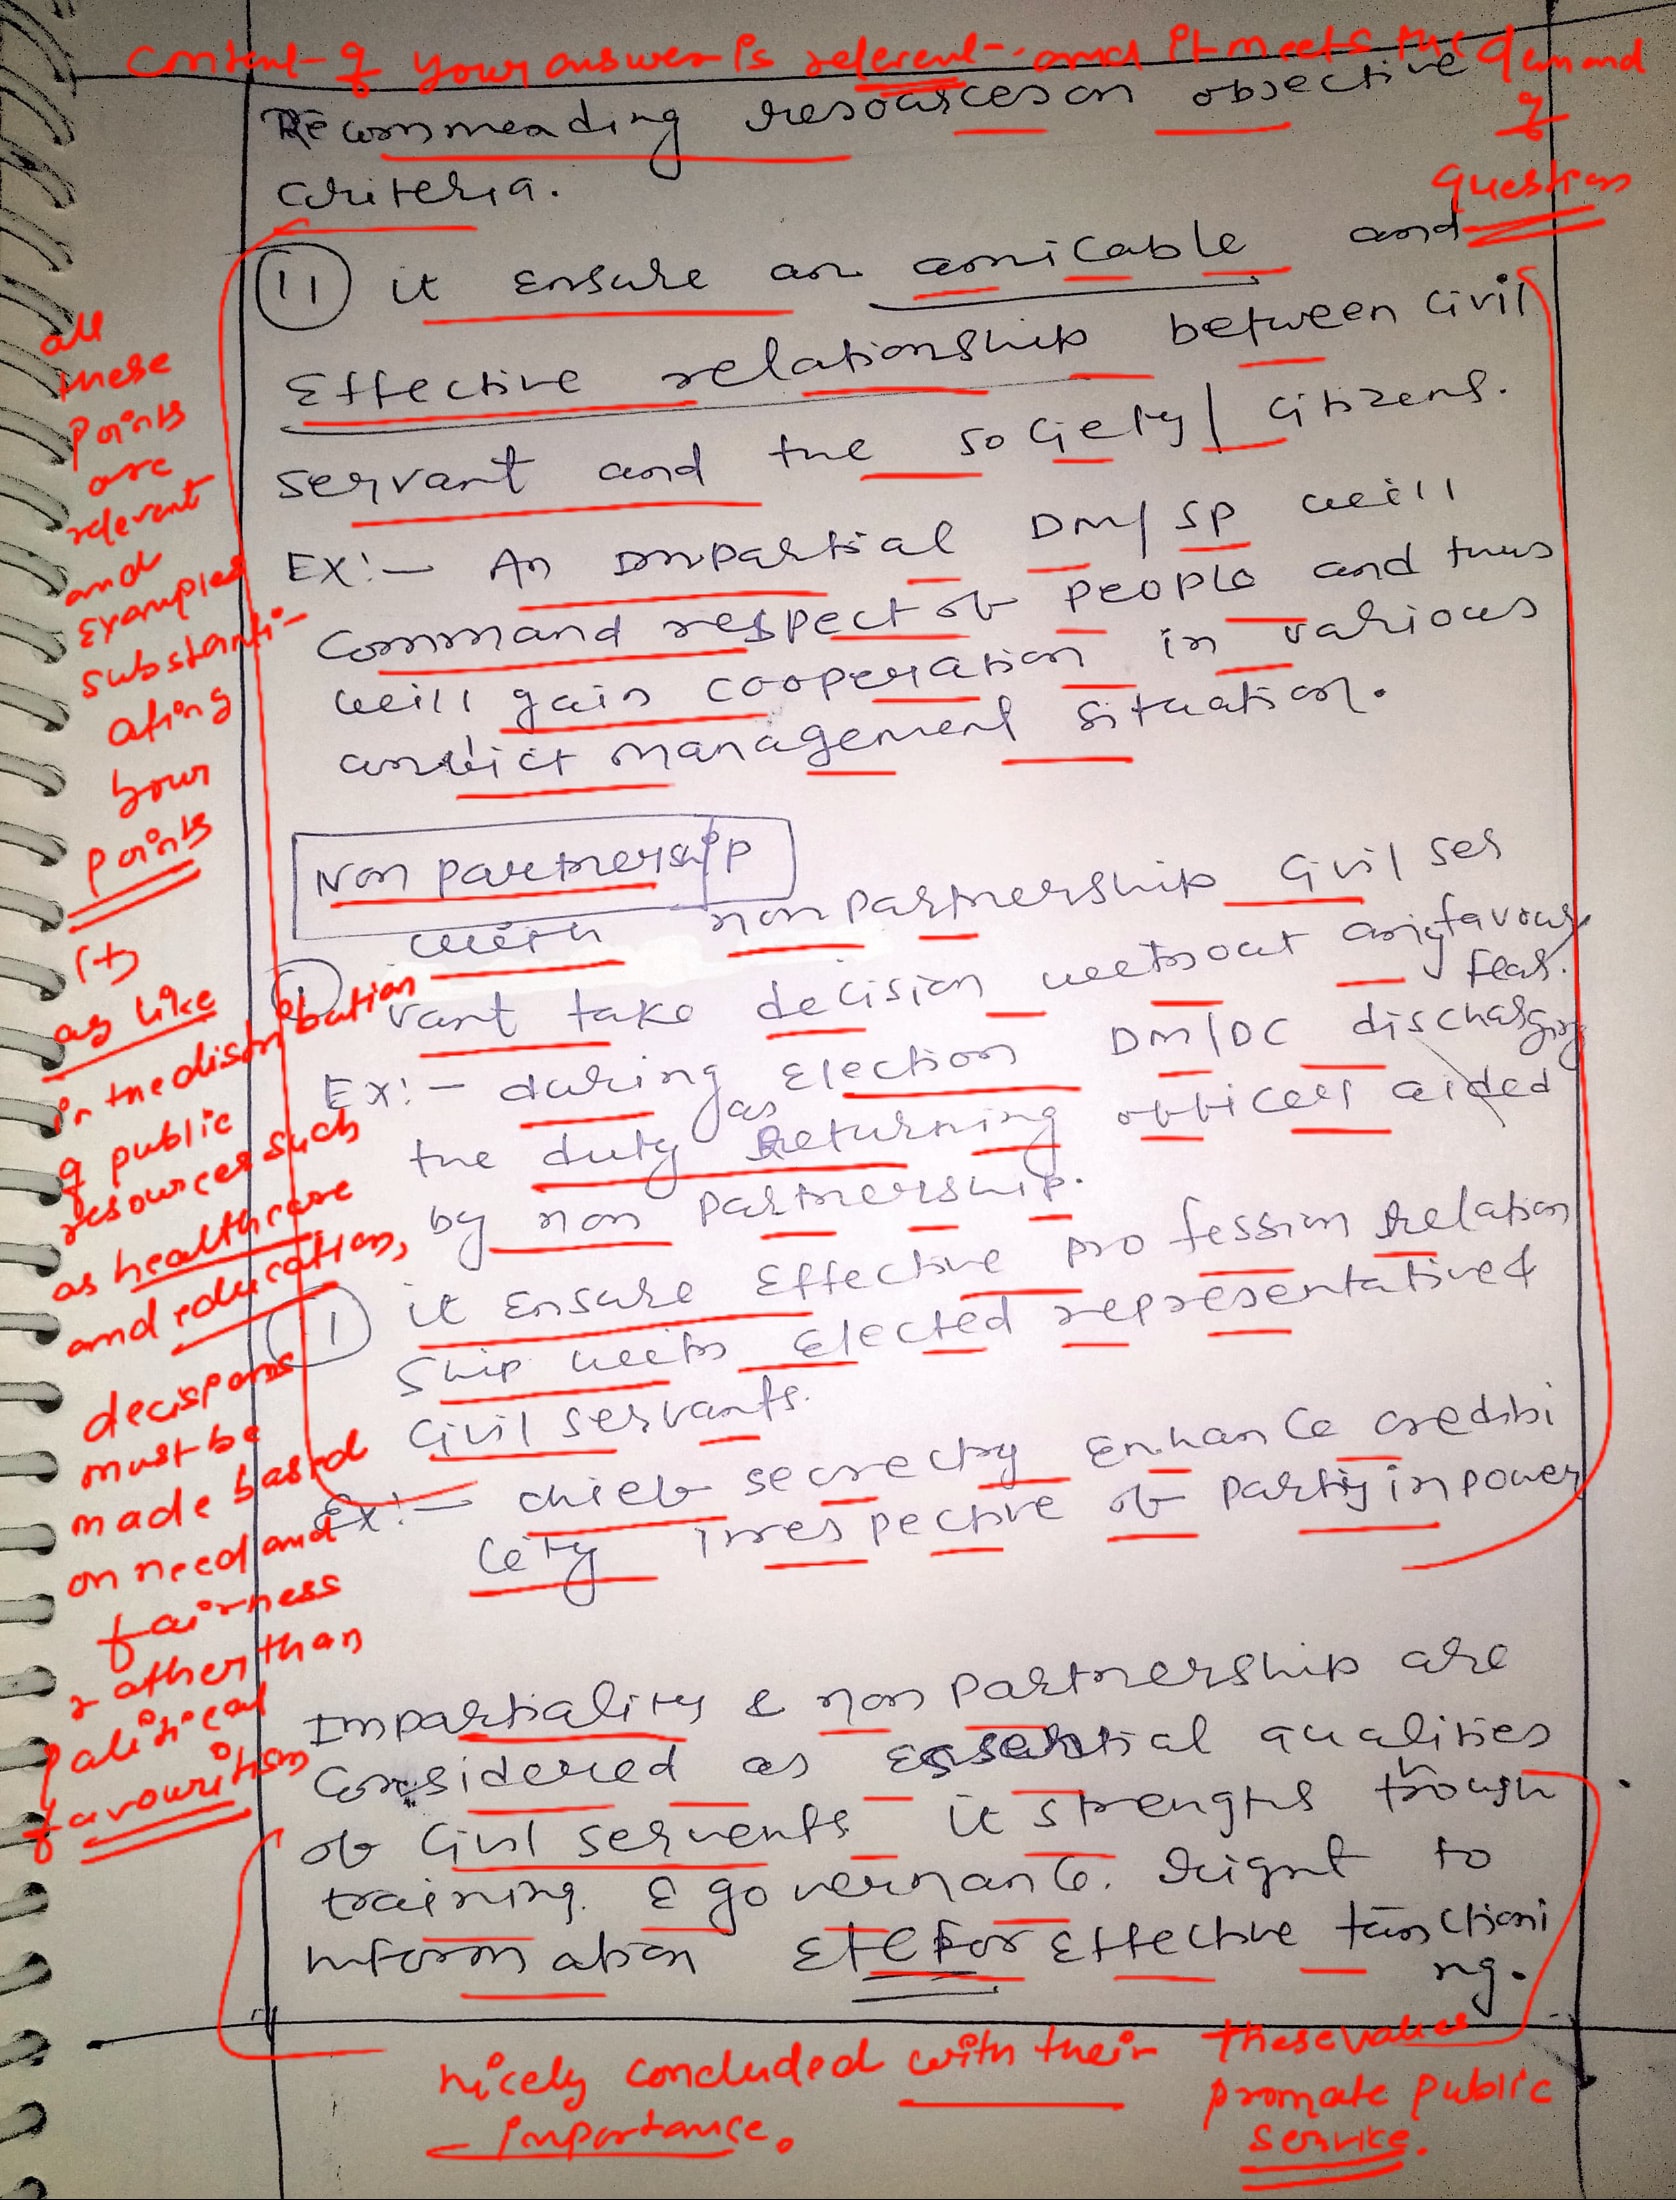 Content of your answer is relevent and it meets the demand
of
question
Recommeading resources on objective
criteria.
(11) it Ensure an amicable and
Effective relationship between Civil
servant and the society/ Citizens.
EX:- An Impartial DM/ SP will
Command respect of people and thus
will gain cooperation in various
conflict management situation.
Non partnership
(1) with nonpartnership Civil ser
vant take decision without any favour
fear.
Ex:- during Election DM/DC discharging
the duty as Returning officer aided
by non partnership.
(1) it Ensure Effective profession relation
ship with Elected representative &
Civil servants.
Ex:- chief secrectry Enhance credibi
lity irrespective of party in power
Impartiality & non partnership are
Considered as Essential qualities
of Civil servents it strengths trough
training & governance. Right to
information Etc for Effective functioni
ng.
all
these
points
are
relevant
and
Examples
substanti-
ating
your
points
(+)
as like
in the distribution
of public
resources such
as healthcare
and education,
decisions
must be
made based
on need and
fairness
rather than
political
favouritism
nicely concluded with their these values
importance. promote public
service.